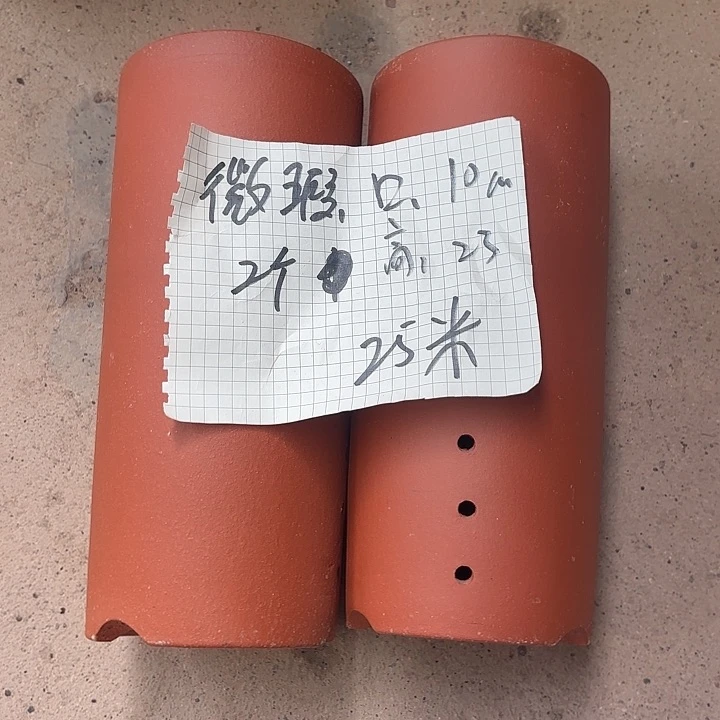 微瑕、口、10cm
2个 高、25
25米